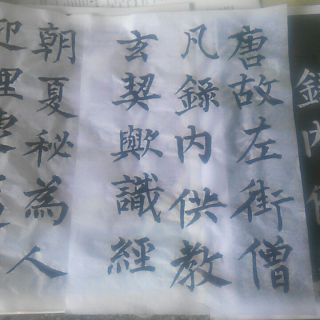 錄內
唐故左街僧
凡錄內供教
玄契歟識經
朝夏秘為人
迎理